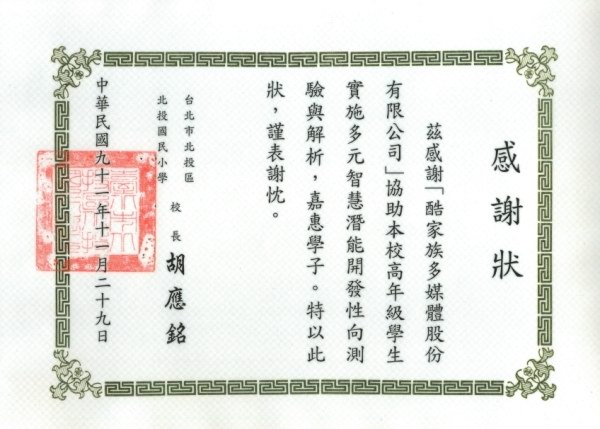 感謝狀
茲感謝「酷家族多媒體股份
有限公司」協助本校高年級學生
實施多元智慧潛能開發性向測
驗與解析，嘉惠學子。特以此
狀，謹表謝忱。
台北市北投區
北投國民小學
校長 胡應銘
中華民國九十一年十一月二十九日